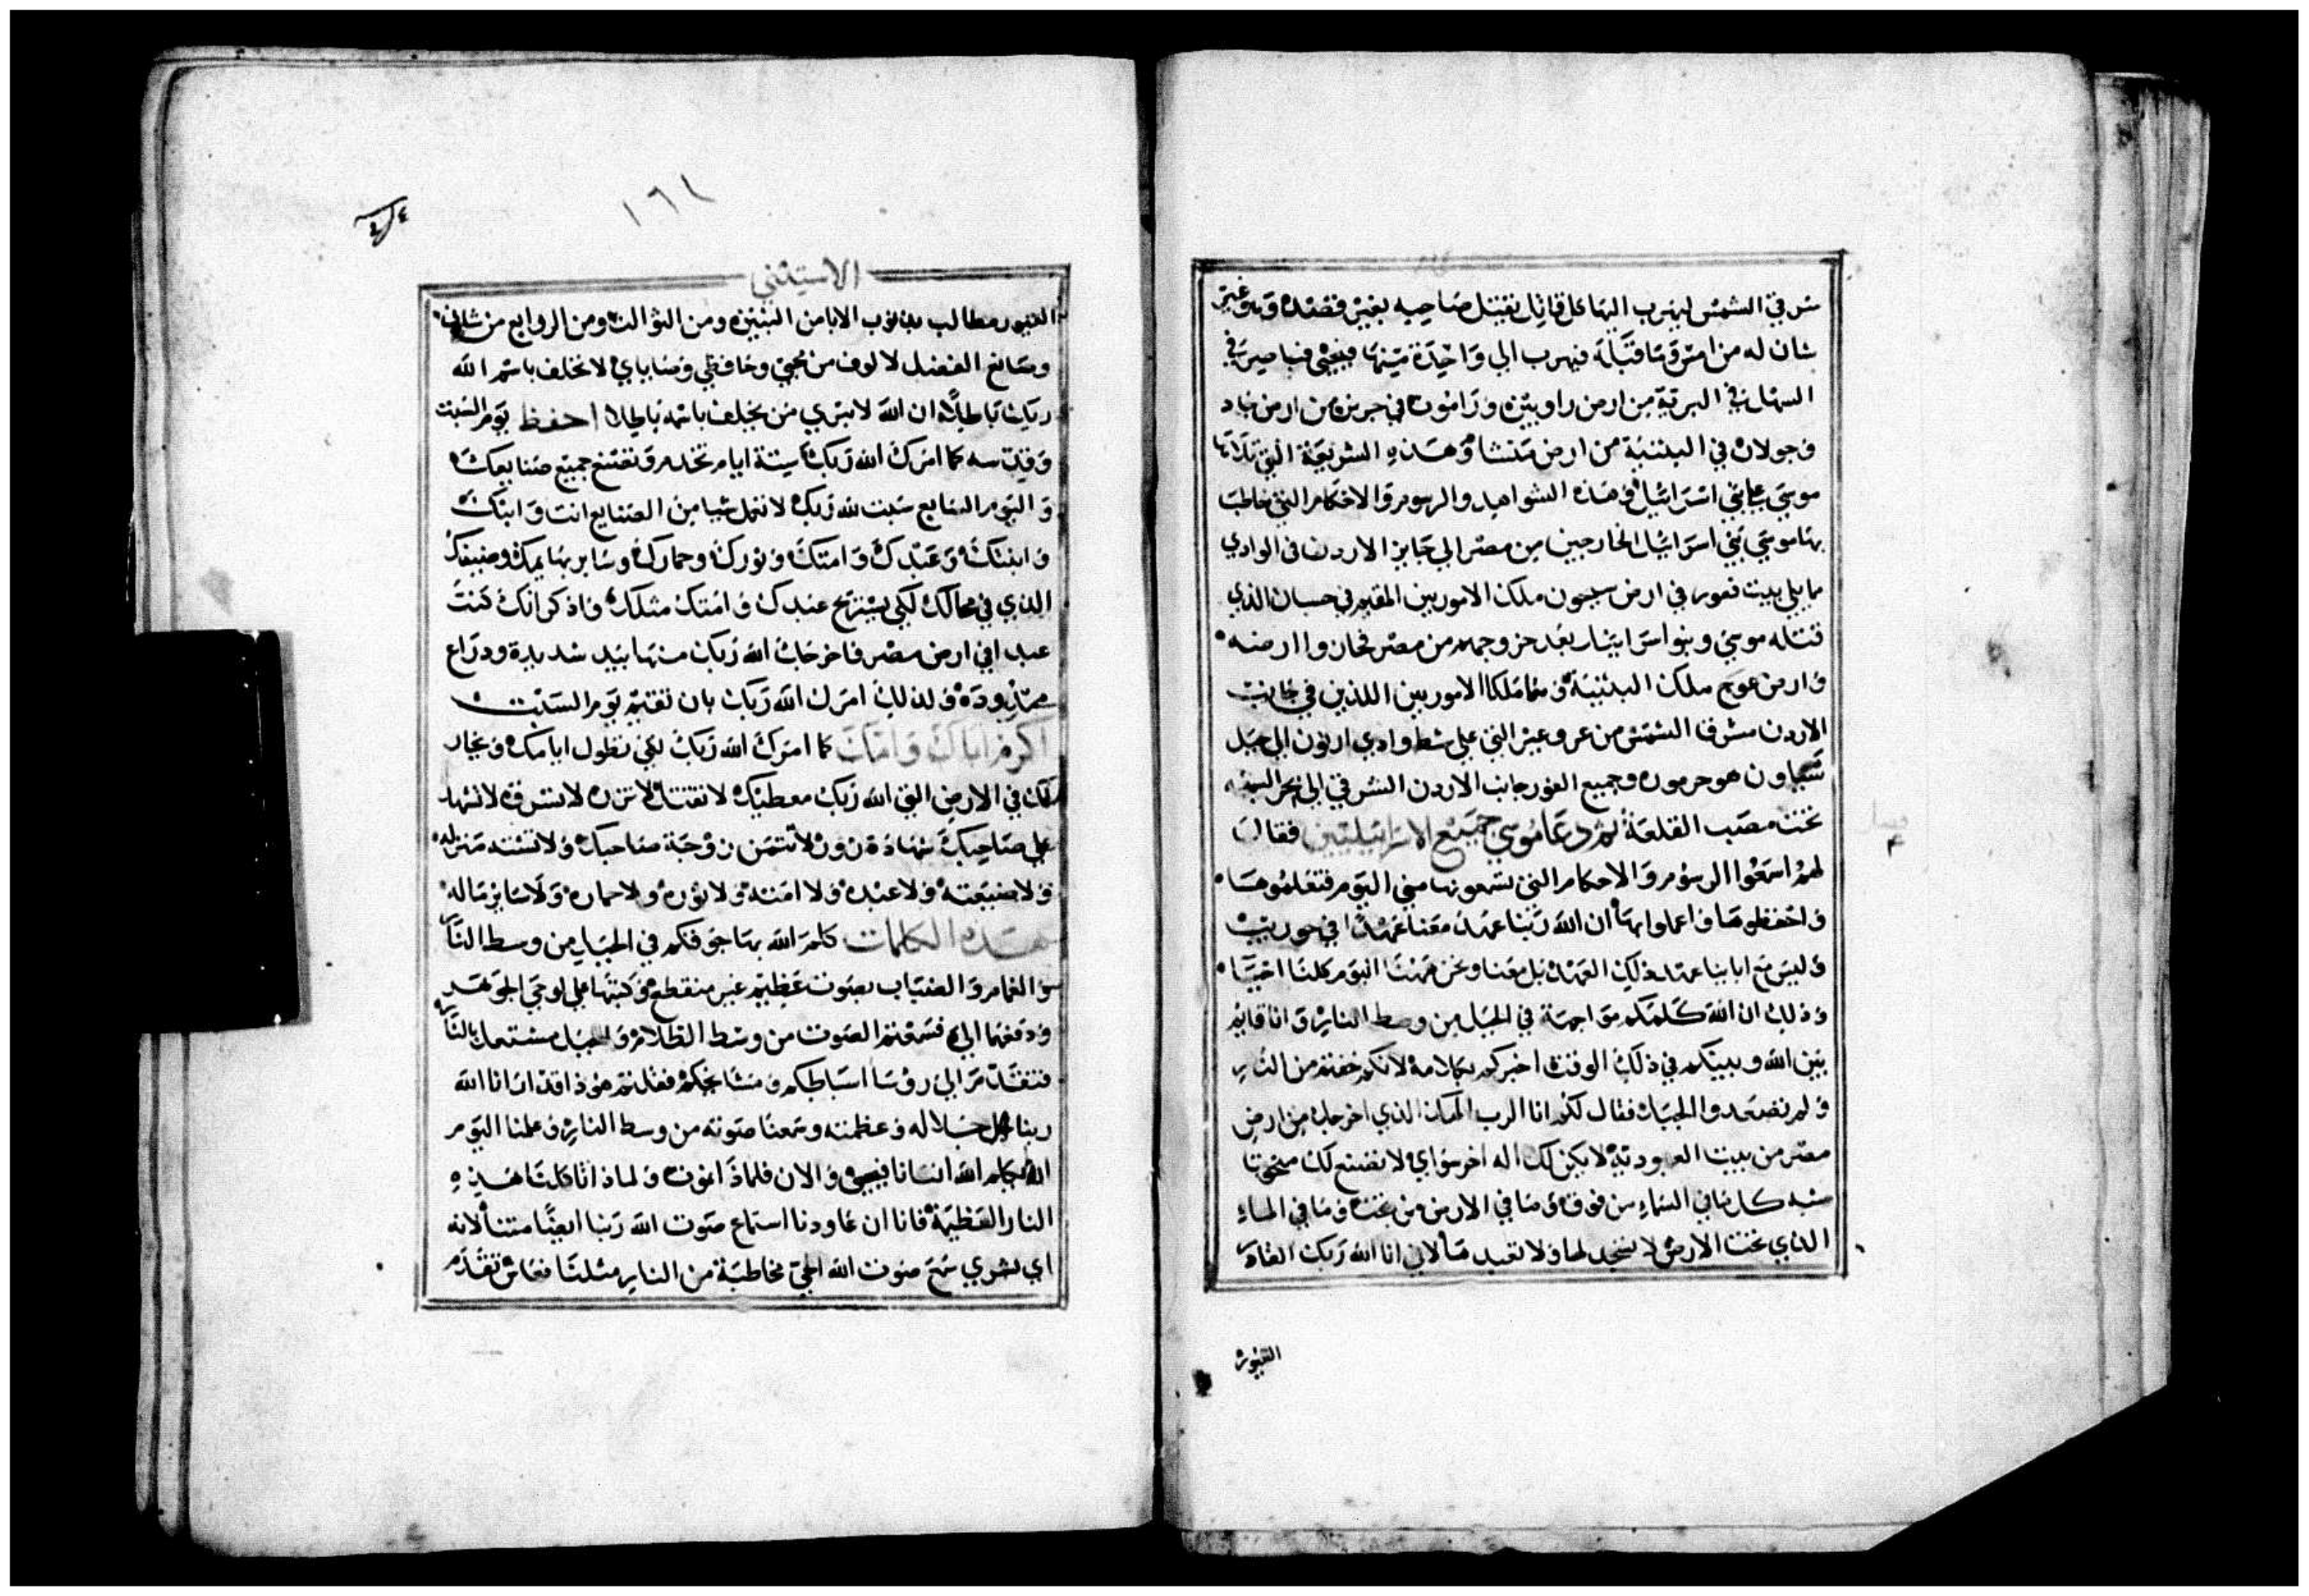 شرقي الشمس ليهرب اليها كل قاتل يقتل صاحبه بغير قصده وهو غير
شان له من امس وما قبله فيهرب الي واحدة منها فيحيى فباصر في
السهل في البرية من ارض راوبين وراموت في جرش من ارض جاد
وجولان في البثنية من ارض منشا وهذه الشريعة التي تلاها
موسي علي بني اسرائيل وهذه الشواهد والرسوم والاحكام التي خاطب
بها موسي بني اسرائيل الخارجين من مصر الي جايز الاردن في الوادي
مما يلي بيت فغور في ارض سيحون ملك الاموريين المقيم في حسبان الذي
قتله موسي وبنو اسرائيل بعد خروجهم من مصر فحازوا ارضه
وارض عوج ملك البثنية وهما ملكا الاموريين اللذين في جانب
الاردن مشرق الشمس من عروعير التي علي شط وادي ارنون الي جبل
شياون هو حرمون وجميع الغور جانب الاردن الشرقي الي بحر البرية
تحت مصب القلعة ثم دعا موسي جميع الاسرائيليين فقال
لهم اسمعوا الرسوم والاحكام التي تسمعونها مني اليوم فتعلموها
واحفظوها واعملوا بها ان الله ربنا عهد معنا عهدا في حوريب
وليس مع اباينا عهد ذلك العهد بل معنا ونحن ههنا اليوم كلنا احيا
وذلك ان الله كلمكم مواجهة في الجبل من وسط النار وانا قايم
بين الله وبينكم في ذلك الوقت اخبركم بكلامه لانكم خفتم من النار
ولم تصعدوا الجبل فقال لكم انا الرب الهك الذي اخرجك من ارض
مصر من بيت العبودية لا يكن لك اله اخر سواي لا تصنع لك منحوتا
شبه كل ما في السماء من فوق وما في الارض من تحت وما في الماء
الذي تحت الارض لا تسجد لها ولا تعبدها لاني انا الله ربك القادر
الغيور
١٦١
الاستثني
الغيور مطالب بذنوب الابا من البنين ومن الثوالث ومن الروابع من شاني
وصانع الفضل لالوف من محبي وحافظي وصاياي لا تحلف باسم الله
ربك باطلا ان الله لا يبري من يحلف باسمه باطلا احفظ يوم السبت
وقدسه كما امرك الله ربك ستة ايام تخدم وتصنع جميع صنايعك
واليوم السابع سبت لله ربك لا تعمل شيا من الصنايع انت وابنك
وابنتك وعبدك وامتك وثورك وحمارك وساير بهايمك وضيفك
الذي في محالك لكي يستريح عبدك وامتك مثلك واذكر انك كنت
عبدا في ارض مصر فاخرجك الله ربك منها بيد شديدة وذراع
ممدودة ولذلك امرك الله ربك بان تقيم يوم السبت
اكرم اباك وامك كما امرك الله ربك لكي تطول ايامك ونجار
لك في الارض التي الله ربك معطيك لا تقتل لا تزن لا تسرق لا تشهد
علي صاحبك شهادة زور لا تتمن زوجة صاحبك ولا تشته منزله
ولا ضيعته ولا عبده ولا امته ولا ثوره ولا حماره ولا ساير ماله
هذه الكلمات كلم الله بها جوقكم في الجبل من وسط النار
والغمام والضباب بصوت عظيم غير منقطع وكتبها علي لوحي الجوهر
ودفعهما الي فسمعتم الصوت من وسط الظلام والجبل مشتعل بالنار
فتقدم الي روسا اسباطكم ومشايخكم فقلتم هوذا قد ارانا الله
ربنا جلاله وعظمته وسمعنا صوته من وسط النار وعلمنا اليوم
ان يكلم الله انسانا فيحيى والان فلماذا نموت ولماذا تاكلنا هذه
النار العظيمة فانا ان عاودنا استماع صوت الله ربنا ايضا متنا لانه
اي بشري سمع صوت الله الحي مخاطبة من النار مثلنا فعاش تقدم